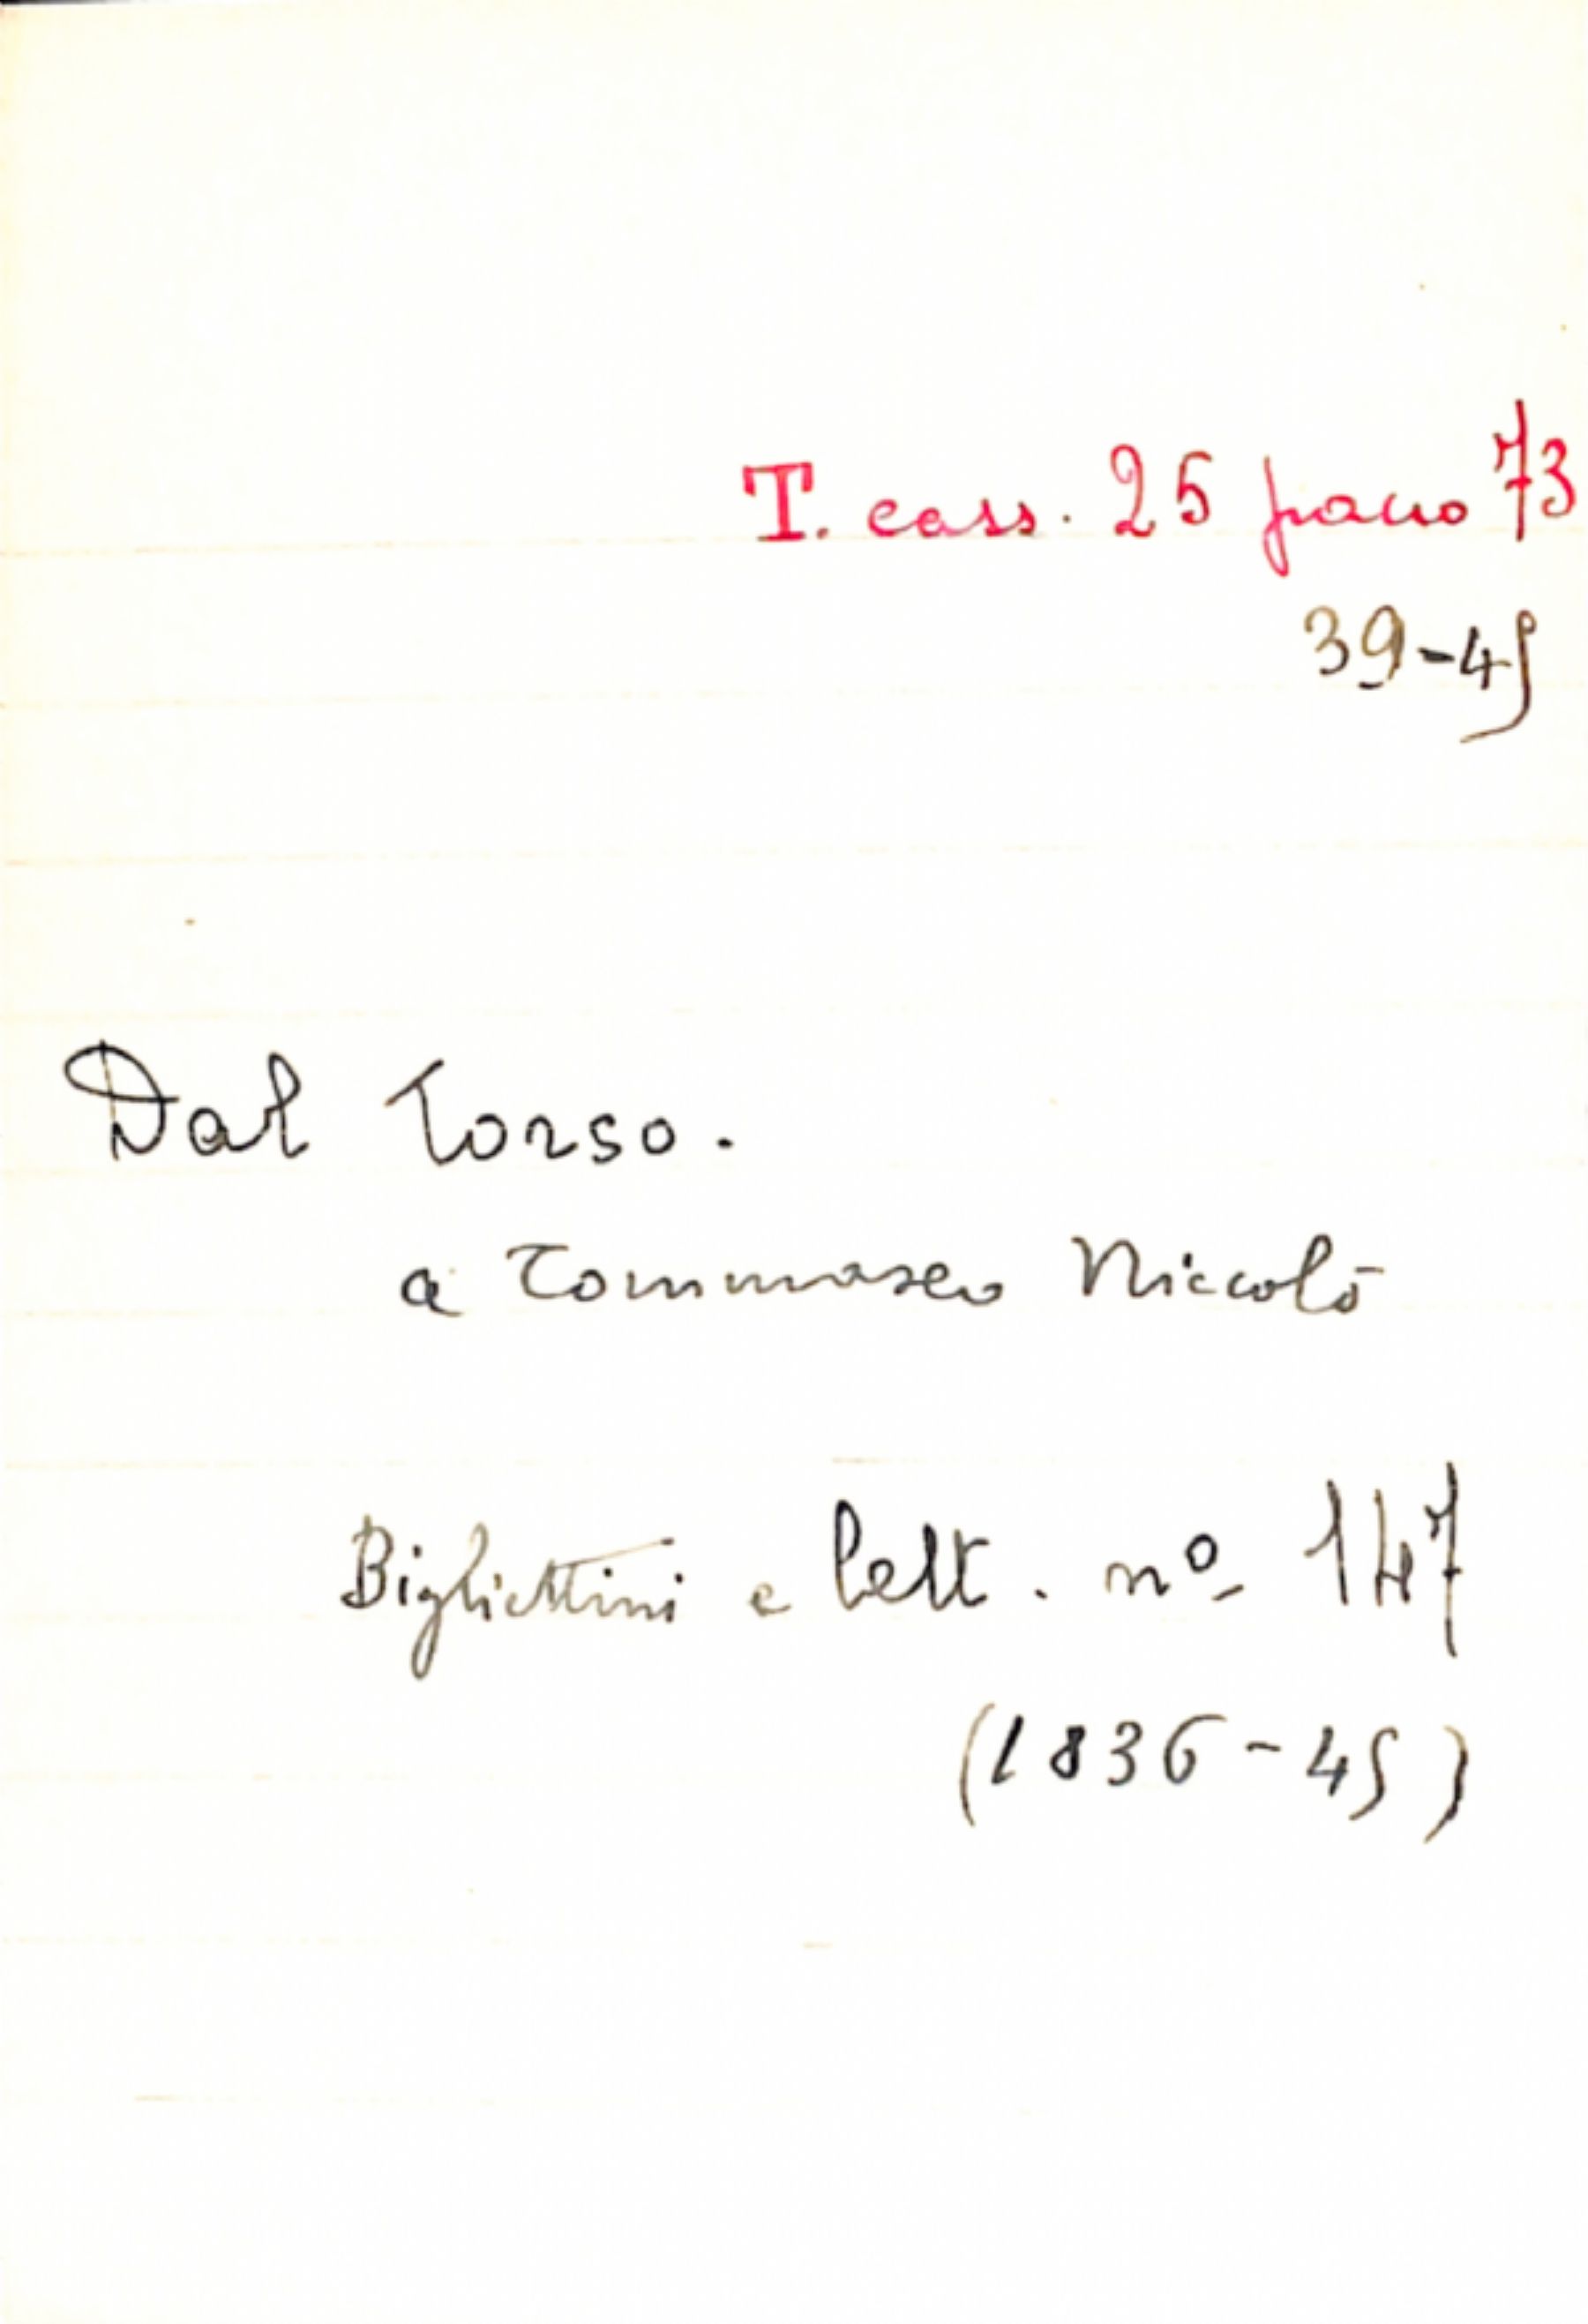 T. cass. 25 pacco 73
39-45
Dal Torso.
a Tommaseo Niccolò
Bigliettini e lett. nº 147
(1836-45)